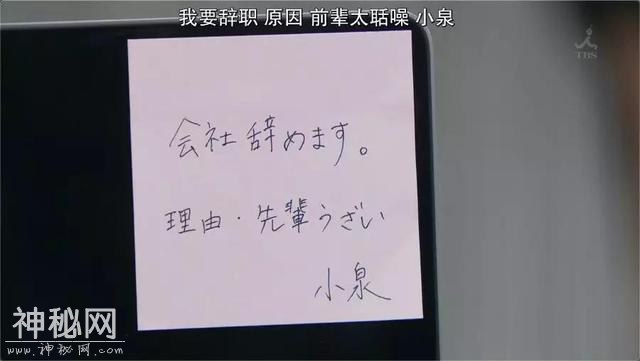 我要辞职 原因 前辈太聒噪 小泉
TBS
会社辞めます。
理由・先輩うざい
小泉
神秘网
www.神秘网.com